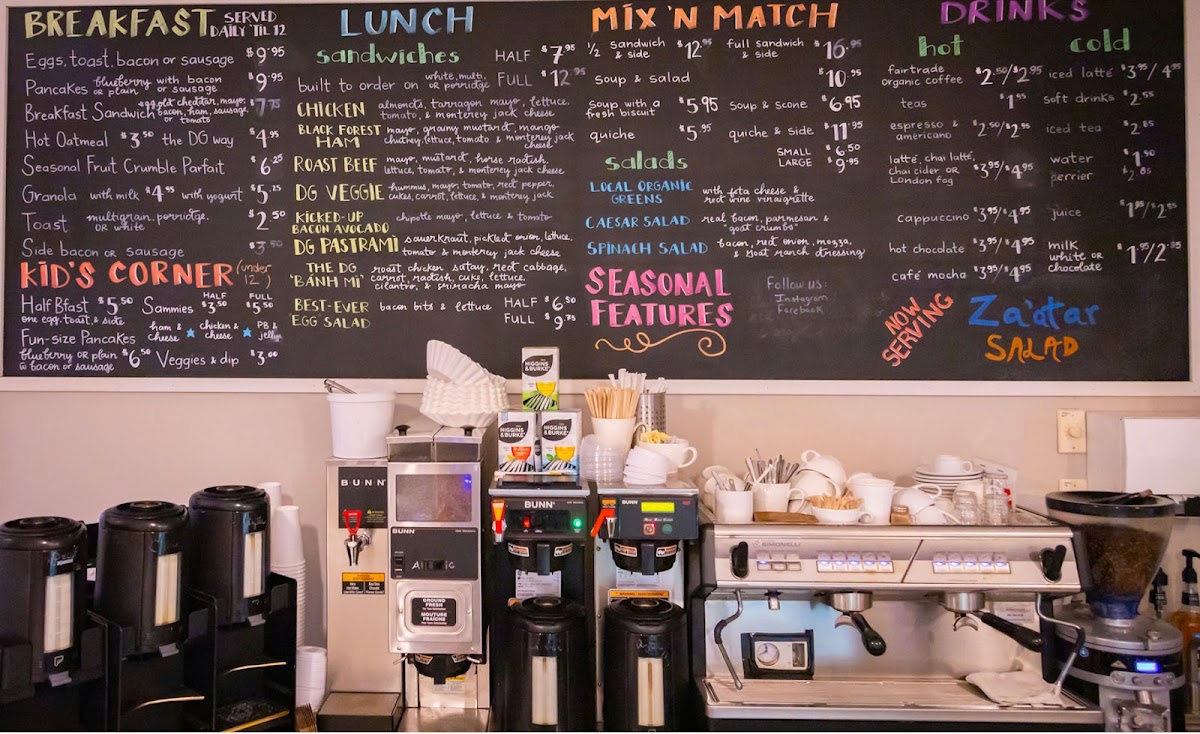 BREAKFAST SERVED DAILY 'TIL 12
Eggs, toast, bacon or sausage $9.95
Pancakes blueberry or plain with bacon or sausage $9.95
Breakfast Sandwich egg, old cheddar, mayo, bacon, ham, sausage or tomato $7.75
Hot Oatmeal $3.50 the DG way $4.95
Seasonal Fruit Crumble Parfait $6.25
Granola with milk $4.95 with yogurt $5.25
Toast multigrain, porridge, or white $2.50
Side bacon or sausage $3.50
KID'S CORNER (under 12)
Half Bfast $5.50
one egg, toast, & side
Sammies HALF $3.50 FULL $5.50
ham & cheese ★ chicken & cheese ★ PB & jelly
Fun-size Pancakes
blueberry or plain w bacon or sausage $6.50
Veggies & dip $3.00
LUNCH
sandwiches HALF $7.95
built to order on white, multi, or porridge FULL $12.95
CHICKEN almonds, tarragon mayo, lettuce, tomato, & monterey jack cheese
BLACK FOREST HAM mayo, grainy mustard, mango chutney, lettuce, tomato & monterey jack cheese
ROAST BEEF mayo, mustard, horse radish, lettuce, tomato, & monterey jack cheese
DG VEGGIE hummus, mayo, tomato, red pepper, cukes, carrot, lettuce, & monterey jack
KICKED-UP BACON AVOCADO chipotle mayo, lettuce & tomato
DG PASTRAMI sauerkraut, pickled onion, lettuce, tomato & monterey jack cheese
THE DG 'BÁNH MÌ' roast chicken satay, red cabbage, carrot, radish, cuke, lettuce, cilantro, & sriracha mayo
BEST-EVER EGG SALAD bacon bits & lettuce HALF $6.50
FULL $9.75
MIX 'N MATCH
1/2 sandwich & side $12.95 full sandwich & side $16.95
soup & salad $10.95
soup with a fresh biscuit $5.95 soup & scone $6.95
quiche $5.95 quiche & side $11.95
salads SMALL $6.50
LARGE $9.95
LOCAL ORGANIC GREENS with feta cheese & red wine vinaigrette
CAESAR SALAD real bacon, parmesan & "goat crumbs"
SPINACH SALAD bacon, red onion, mozza, & goat ranch dressing
SEASONAL
FEATURES
Follow us:
Instagram
Facebook
DRINKS
hot
fair trade organic coffee $2.50/$2.95
teas $1.95
espresso & americano $2.50/$2.95
latté, chai latté, chai cider or London fog $3.95/$4.95
cappuccino $3.95/$4.95
hot chocolate $3.95/$4.95
café mocha $3.95/$4.95
cold
iced latté $3.95/4.95
soft drinks $2.55
iced tea $2.85
water $1.50
perrier $2.85
juice $1.95/$2.95
milk white or chocolate $1.95/2.95
NOW SERVING
Za'atar
SALAD
HIGGINS & BURKE
HIGGINS & BURKE
HIGGINS & BURKE
BUNN
BUNN
BUNN
BUNN
BUNN
GROUND FRESH
MOUTURE FRAÎCHE
SIMONELLI
WARNING